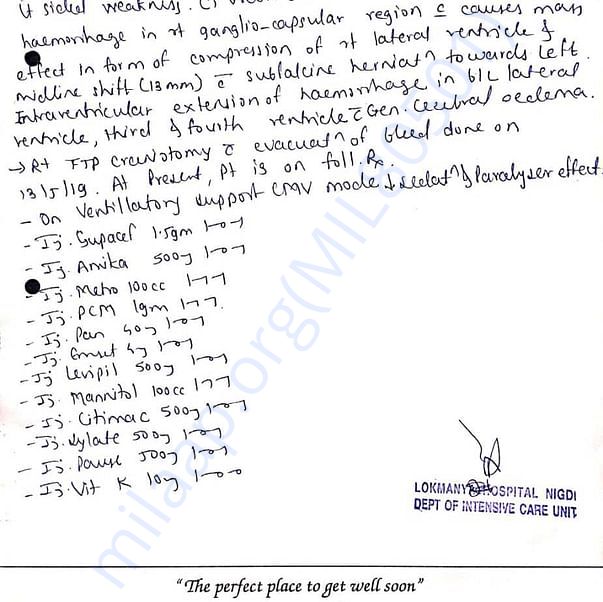 Lt sided weakness.
haemorrhage in rt ganglio-capsular region c̄ causes mass
effect in form of compression of rt lateral ventricle &
midline shift (13mm) c̄ subfalcine herniatⁿ towards left.
Intraventricular extension of haemorrhage in B/L lateral
ventricle, third & fourth ventricle c̄ Gen. cerebral oedema.
→ Rt FTP craniotomy c̄ evacuatⁿ of bleed done on
13/5/19. At Present, Pt is on foll. Rx.
- On Ventillatory support CMV mode ↓ sedatⁿ & Paralyser effect.
- Ij. Supacef 1.5gm 1-0-1
- Ij. Amika 500g 1-0-1
- Ij. Metro 100cc 1-1-1
- Ij. PCM 1gm 1-1-1.
- Ij. Pan 40g 1-0-1
- Ij. Emset 4g 1-0-1
- Ij Levipil 500g 1-0-1
- Ij. Mannitol 100cc 1-1-1
- Ij. Citimac 500g 1-0-1
- Ij. Sylate 500g 1-0-1
- Ij. Pause 500g 1-0-1
- Ij. Vit K 10g 1-0-0
LOKMANYA HOSPITAL NIGDI
DEPT OF INTENSIVE CARE UNIT
"The perfect place to get well soon"
milaap.org(MIL80501)